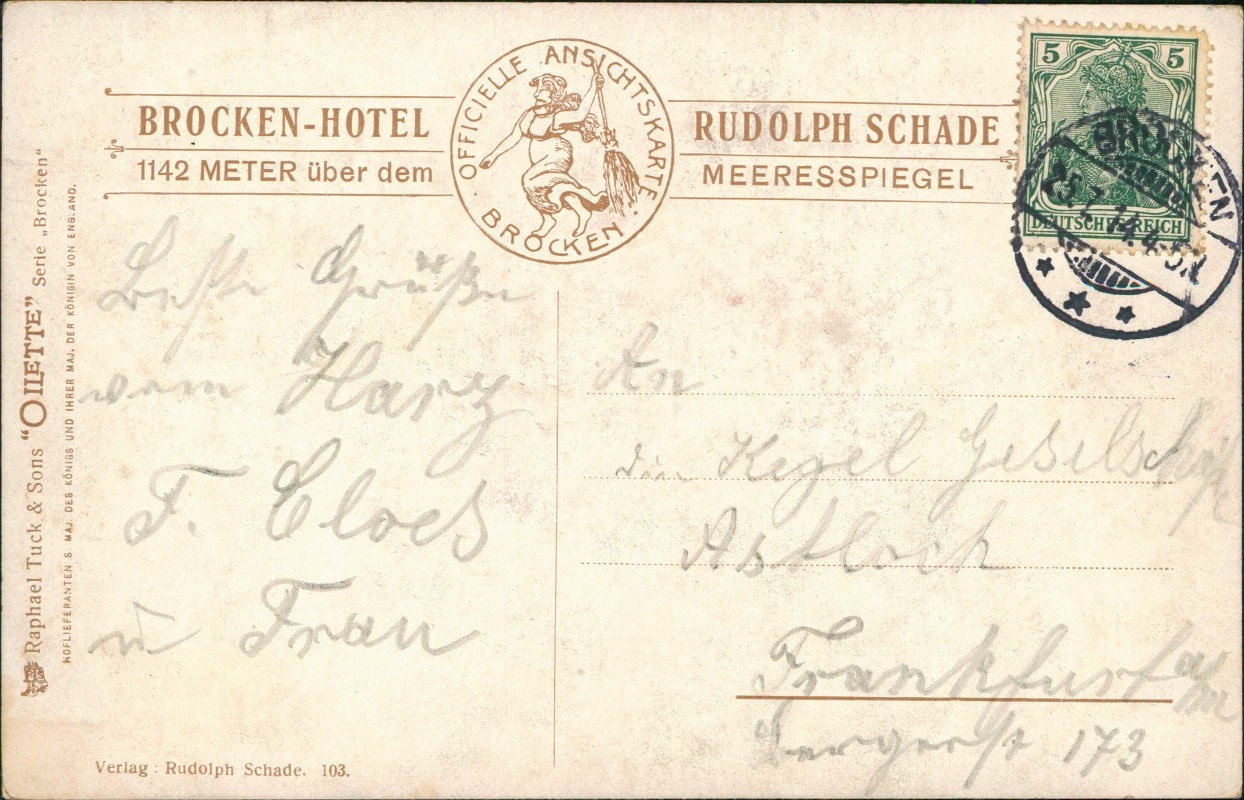 BROCKEN-HOTEL
1142 METER über dem
OFFICIELLE ANSICHTSKARTE
BROCKEN
RUDOLPH SCHADE
MEERESSPIEGEL
5 5
DEUTSCHES REICH
BROCKEN
7.14.4-5N
Beste Grüße
vom Harz
F. Cloes
u Frau
An
die Kegel Geselschaft
Astloch
Frankfurt a/m
Bergerst 173
Raphael Tuck & Sons "OILETTE" Serie „Brocken“
HOFLIEFERANTEN S. MAJ. DES KÖNIGS UND IHRER MAJ. DER KÖNIGIN VON ENGLAND.
Verlag: Rudolph Schade. 103.